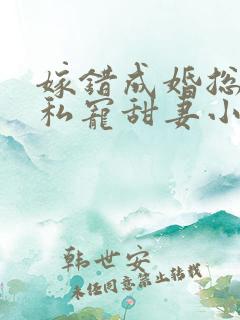 嫁错成婚总
私宠甜妻小
韩世安
未经同意禁止转载